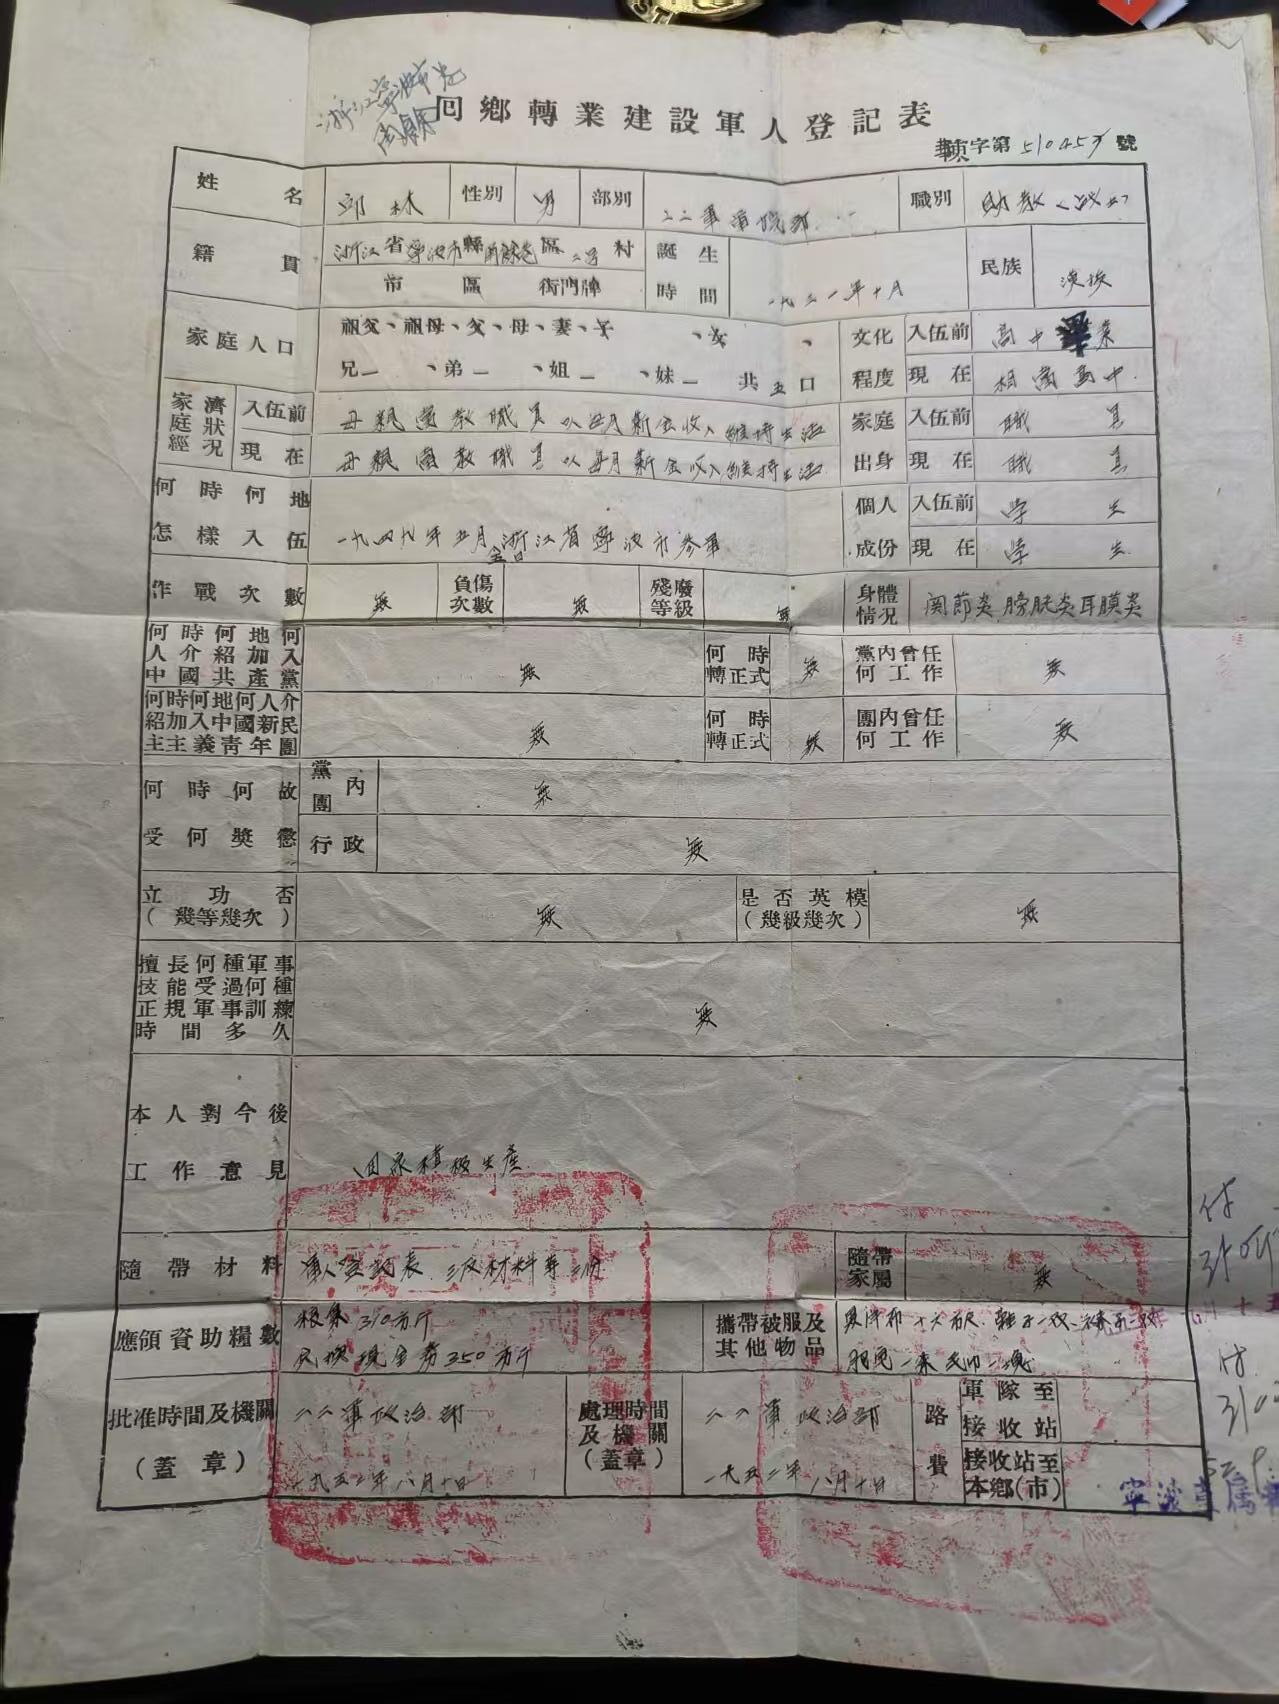 浙江寧波市
回鄉轉業建設軍人登記表
字第510457號
姓名 邱林 性別 男 部別 二二軍 職別 助教
籍貫 浙江省寧波市縣 區 二号村
市 區 街門牌
誕生時間 一九三一年十月 民族 漢族
家庭人口 祖父、祖母、父、母、妻、子 、女 、
兄一 、弟一 、姐一 、妹一 共五口
文化程度 入伍前 高中畢業
現在 相當高中
家庭經濟狀況 入伍前 母親當教職員以每月薪金收入維持生活
現在 母親當教職員以每月薪金收入維持生活
家庭出身 入伍前 職員
現在 職員
何時何地怎樣入伍 一九四九年五月 浙江省寧波市參軍
個人成份 入伍前 学生
現在 学生
作戰次數 無 負傷次數 無 殘廢等級 無 身體情況 関節炎 膀胱炎 耳膜炎
何時何地何人介紹加入中國共產黨 無 何時轉正式 無 黨內曾任何工作 無
何時何地何人介紹加入中國新民主主義青年團 無 何時轉正式 無 團內曾任何工作 無
何時何故受何獎懲 黨團內 無
行政 無
立功否(幾等幾次) 無 是否英模(幾級幾次) 無
擅長何種軍事技能受過何種正規軍事訓練時間多久 無
本人對今後工作意見 回家積极生產
隨帶材料 軍人登記表 三反材料等二份 隨帶家屬 無
應領資助糧數 糧票310市斤
現金券350市斤
攜帶被服及其他物品 鞋子一双
肥皂一条毛巾一塊
批准時間及機關(蓋章) 二二軍政治部
一九五二年八月十日
處理時間及機關(蓋章) 二二軍政治部
一九五二年八月十日
路費 軍隊至接收站
接收站至本鄉(市)
付
付